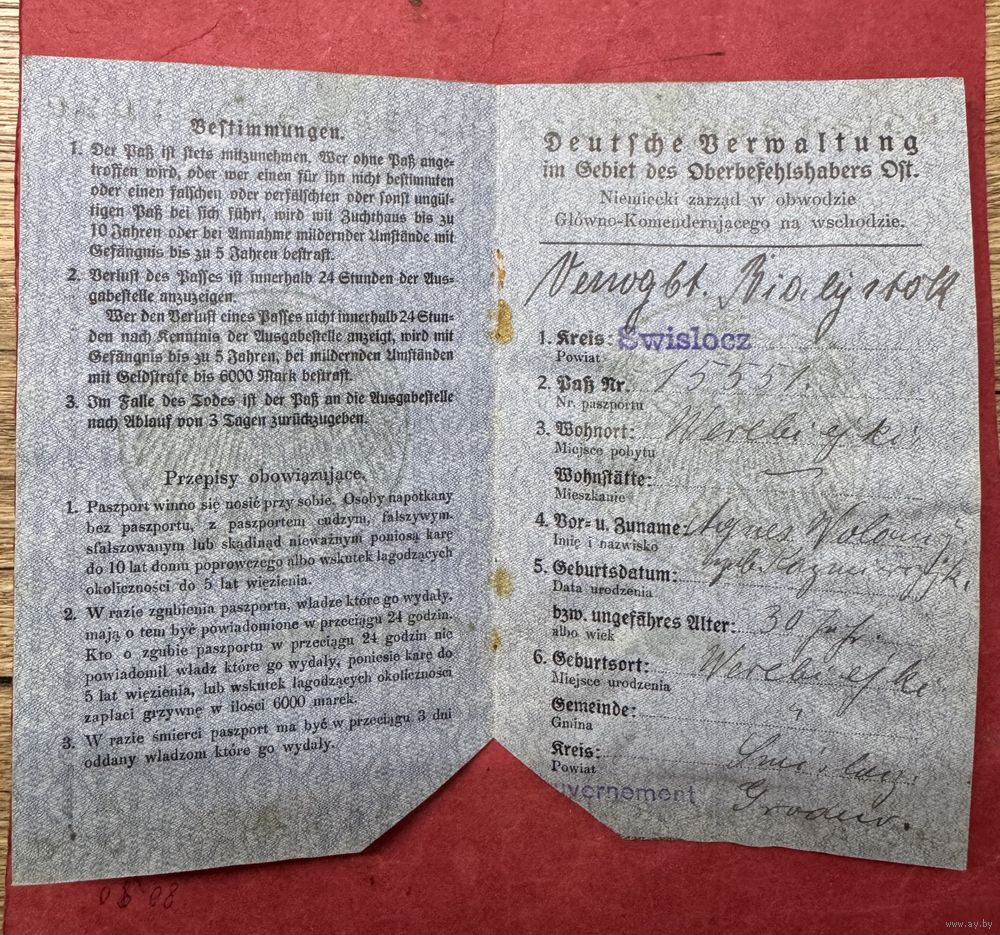 Bestimmungen.
1. Der Paß ist stets mitzunehmen. Wer ohne Paß ange-
troffen wird, oder wer einen für ihn nicht bestimmten
oder einen falschen oder verfälschten oder sonst ungül-
tigen Paß bei sich führt, wird mit Zuchthaus bis zu
10 Jahren oder bei Annahme mildernder Umstände mit
Gefängnis bis zu 5 Jahren bestraft.
2. Verlust des Passes ist innerhalb 24 Stunden der Aus-
gabestelle anzuzeigen.
Wer den Verlust eines Passes nicht innerhalb 24 Stun-
den nach Kenntnis der Ausgabestelle anzeigt, wird mit
Gefängnis bis zu 5 Jahren, bei mildernden Umständen
mit Geldstrafe bis 6000 Mark bestraft.
3. Im Falle des Todes ist der Paß an die Ausgabestelle
nach Ablauf von 3 Tagen zurückzugeben.
Przepisy obowiązujące.
1. Paszport winno się nosić przy sobie. Osoby napotkany
bez paszportu, z paszportem cudzym, fałszywym.
sfalszowanym lub skądinąd nieważnym poniosą karę
do 10 lat domu poprowczego albo wskutek lagodzących
okoliczności do 5 lat więzienia.
2. W razie zgubienia paszportu, władze które go wydały,
mają o tem być powiadomione w przeciągu 24 godzin.
Kto o zgubie paszportu w przeciągu 24 godzin nie
powiadomił władz które go wydały, poniesie karę do
5 lat więzienia, lub wskutek lagodzących okoliczności
zapłaci grzywnę w ilości 6000 marek.
3. W razie śmierci paszport ma być w przeciągu 3 dni
oddany władzom które go wydały.
Deutsche Verwaltung
im Gebiet des Oberbefehlshabers Ost.
Niemiecki zarząd w obwodzie
Główno-Komenderujacego na wschodzie.
Bialystok
1. Kreis: Swislocz
Powiat
2. Paß Nr. 15551.
Nr. paszportu
3. Wohnort: Werebiejki
Miejsce pobytu
Wohnstätte: —
Mieszkanie
4. Vor- u. Zuname: Agnes
Imię i nazwisko
5. Geburtsdatum:
Data urodzenia
bzw. ungefähres Alter: 30 Jahr.
albo wiek
6. Geburtsort: Werebiejki
Miejsce urodzenia
Gemeinde: "
Gmina
Kreis:
Powiat
uvernement Grodno.
www.ay.by